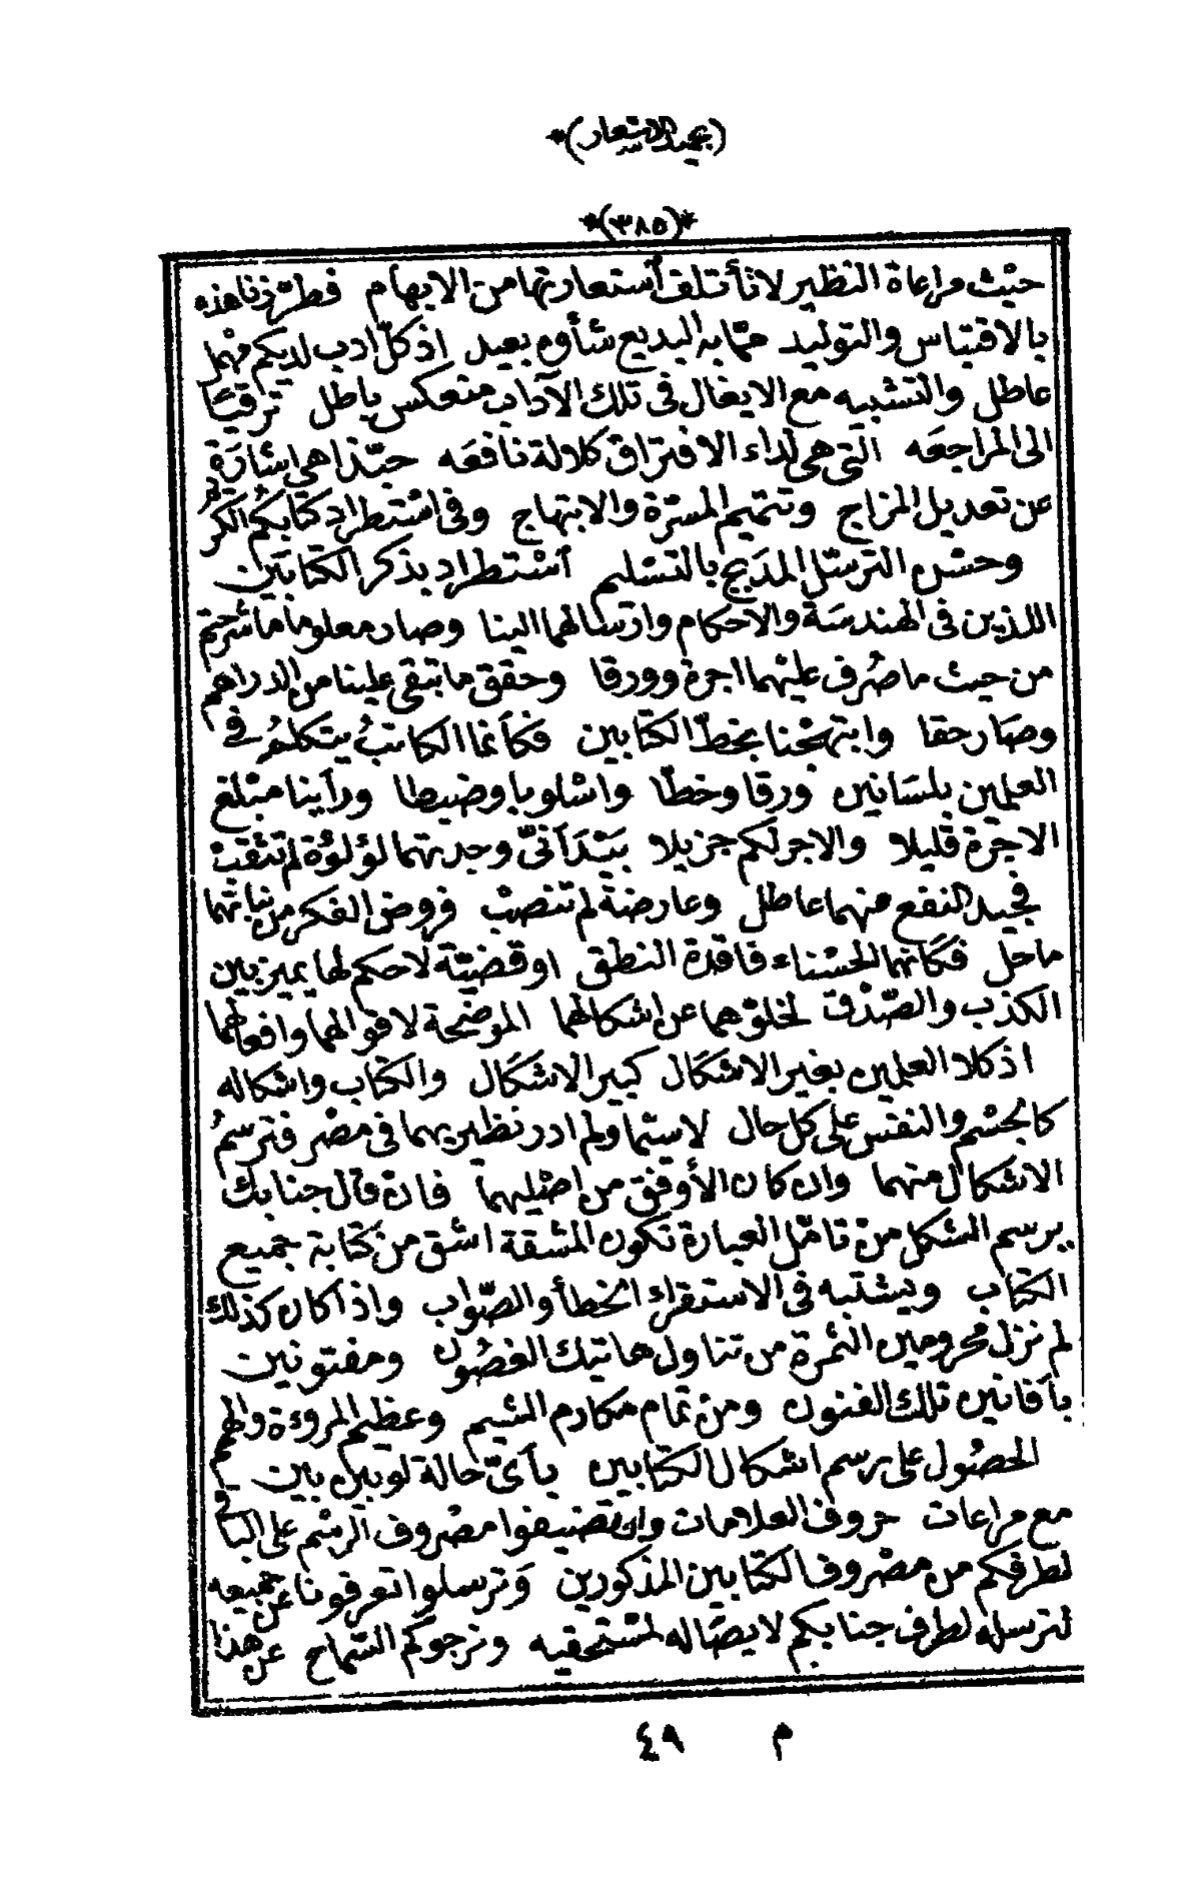 *(
*(٣٨٥)*
حيْث مراعاة النظير لا تأتلف استعارتها من الابهام فطرّزنا هذه
بالاقتباس والتوليد ممّا به البديع شأوه بعيد اذ كلّ ادب لديكم منْهما
عاطل والتشبيه مع الايغال فى تلك الآداب منعكس باطل ترقيبًا
الى المراجعه التى هى لداء الافتراق كلالة نافعه حبّذا هى اشارَة
عن تعديل المزاج وتتميم المسرّة والابتهاج وفى اسْتطراد كتابكُم الكريم
وحسْن الترسّل المدَبج بالتسْليم اسْتطراد بذكر الكتابَين
اللذين فى الهندسَة والاحكام وارْسالهما الينا وصار معلوما ما شرحتم
من حيث ما صُرف عليْهما اجرة وورقا وحقق ما تبقى علينا من الدراهم
وصَار حقا وابتهجْنا بخطّ الكتابين فكأنما الكاتبُ يتكلمُ فى
العلمين بلسَانين ورقا وخطّا واسْلوبا وضبطا ورأينا مبْلغ
الاجْرة قليلا والاجر لكم جزيلا بيْدَ أنّى وجدتهما لؤلؤة لم تثقبْ
فجيد النفع منهما عاطل وعارضةً لم تنصبْ فروض الفكر من نباتهما
ماحل فكانهما الحسْناء فاقدة النطق او قضيّة لا حكم لها يميز بين
الكذب والصّدْق لخلوّهما عن اشكالهما الموضحة لاقوالهما وافعالهما
اذ كلا العلمين بغير الاشكَال كبير الاشكَال والكتاب واشكاله
كالجسْم والنفس على كل حال لا سيّما ولم ادر نظيريهما فى مصْر فترسمُ
الاشكال منهما وان كان الأوفق من اصْليهما فان قال جنابك
يرسم الشكل من تامّل العبارة تكون المشقة اشق من كتابة جميع
الكتاب ويشتبه فى الاستقراء الخطأ والصّواب واذا كان كذلك
لم نزل محرومين الثمرة من تناول هاتيك الغصُون ومفتونين
بأفانين تلك الفنون ومن تمام مكارم الشيم وعظيم المروءة والهمم
الحصُول على رسم اشكال الكتابين بأىّ حالة لو بين بين
مع مراعات حروف العلامات وان تضيفوا مصْروف الرسْم على الباقى
لطرفكم من مصْروف الكتابين المذكورين وَترسلوا تعرفونا عن جميعه
لنرسله لطرف جنابكم لايصَاله لمسْتحقيه ونرجوكم السّماح عن هذا
م ٤٩